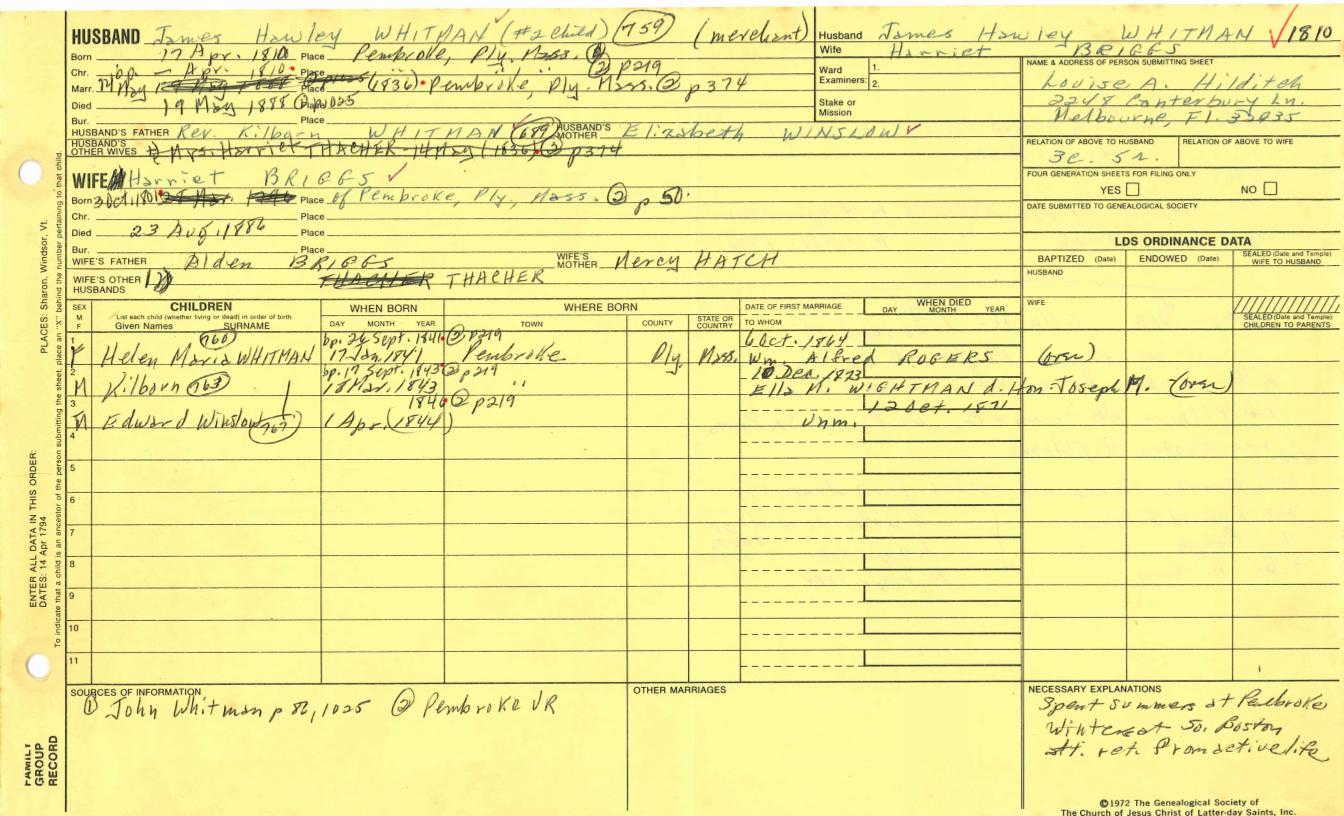 HUSBAND James Hawley WHITMAN (#2 child) 759 (merchant)
Born 17 Apr. 1810 Place Pembroke, Ply. Mass. ② p219
Chr. bp. — Apr. 1810 Place " "
Marr. May Place (1836) Pembroke, Ply. Mass. ② p374
Died 19 May 1888 ① p1025 Place
Bur. Place
HUSBAND'S FATHER Rev. Kilborn WHITMAN (689) HUSBAND'S MOTHER Elizabeth WINSLOW
HUSBAND'S OTHER WIVES Mrs. Harriet THACHER - 14 May (1836) ② p374
WIFE Harriet BRIGGS
Born 3 Oct. 1801 Place of Pembroke, Ply, Mass. ② p 50.
Chr. Place
Died 23 Aug. 1886 Place
Bur. Place
WIFE'S FATHER Alden BRIGGS WIFE'S MOTHER Mercy HATCH
WIFE'S OTHER HUSBANDS THACHER THACHER
Husband James Hawley WHITMAN 1810
Wife Harriet BRIGGS
Ward 1.
Examiners: 2.
Stake or Mission
NAME & ADDRESS OF PERSON SUBMITTING SHEET
Louise A. Hilditch
2248 Canterbury Ln.
Melbourne, Fl. 32935
RELATION OF ABOVE TO HUSBAND RELATION OF ABOVE TO WIFE
3c. 5r.
FOUR GENERATION SHEETS FOR FILING ONLY
YES NO
DATE SUBMITTED TO GENEALOGICAL SOCIETY
LDS ORDINANCE DATA
BAPTIZED (Date) ENDOWED (Date) SEALED (Date and Temple) WIFE TO HUSBAND
HUSBAND
WIFE
SEALED (Date and Temple) CHILDREN TO PARENTS
SEX M F CHILDREN WHEN BORN WHERE BORN DATE OF FIRST MARRIAGE WHEN DIED
List each child (whether living or dead) in order of birth
Given Names SURNAME DAY MONTH YEAR TOWN COUNTY STATE OR COUNTRY TO WHOM DAY MONTH YEAR
1 760 bp. 26 Sept. 1841 ② p219 6 Oct. 1864
F Helen Maria WHITMAN 17 Jan. 1841 Pembroke Ply. Mass. Wm. Alfred ROGERS (over)
2 bp. 17 Sept. 1843 ② p219 10 Dec. 1873
M Kilborn 763 18 Mar. 1843 " Ella M. WIGHTMAN d. Hon. Joseph M. (over)
3 1846 ② p219 12 Oct. 1871
M Edward Winslow 767 1 Apr. (1844) Unm.
4
5
6
7
8
9
10
11
SOURCES OF INFORMATION
① John Whitman p 86, 1025 ② Pembroke VR
OTHER MARRIAGES
NECESSARY EXPLANATIONS
Spent summers at Pembroke
Winters at So. Boston
ret. from active life
©1972 The Genealogical Society of
The Church of Jesus Christ of Latter-day Saints, Inc.
PLACES: Sharon, Windsor, Vt.
ENTER ALL DATA IN THIS ORDER:
DATES: 14 Apr 1794
To indicate that a child is an ancestor of the person submitting the sheet, place an "X" behind the number pertaining to that child.
FAMILY
GROUP
RECORD